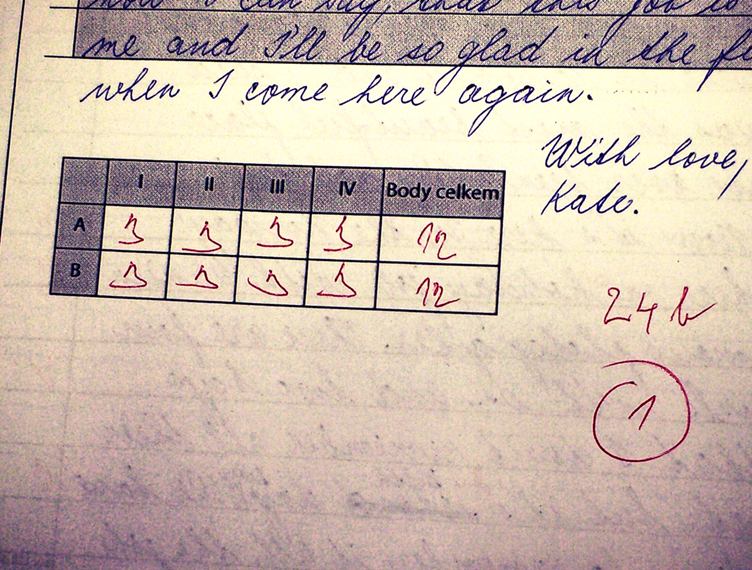 now I can say, that this job is
me and I'll be so glad in the
when I come here again.
With love,
Kate.
I II III IV Body celkem
A 3 3 3 3 12
B 3 3 3 3 12
24 b
1